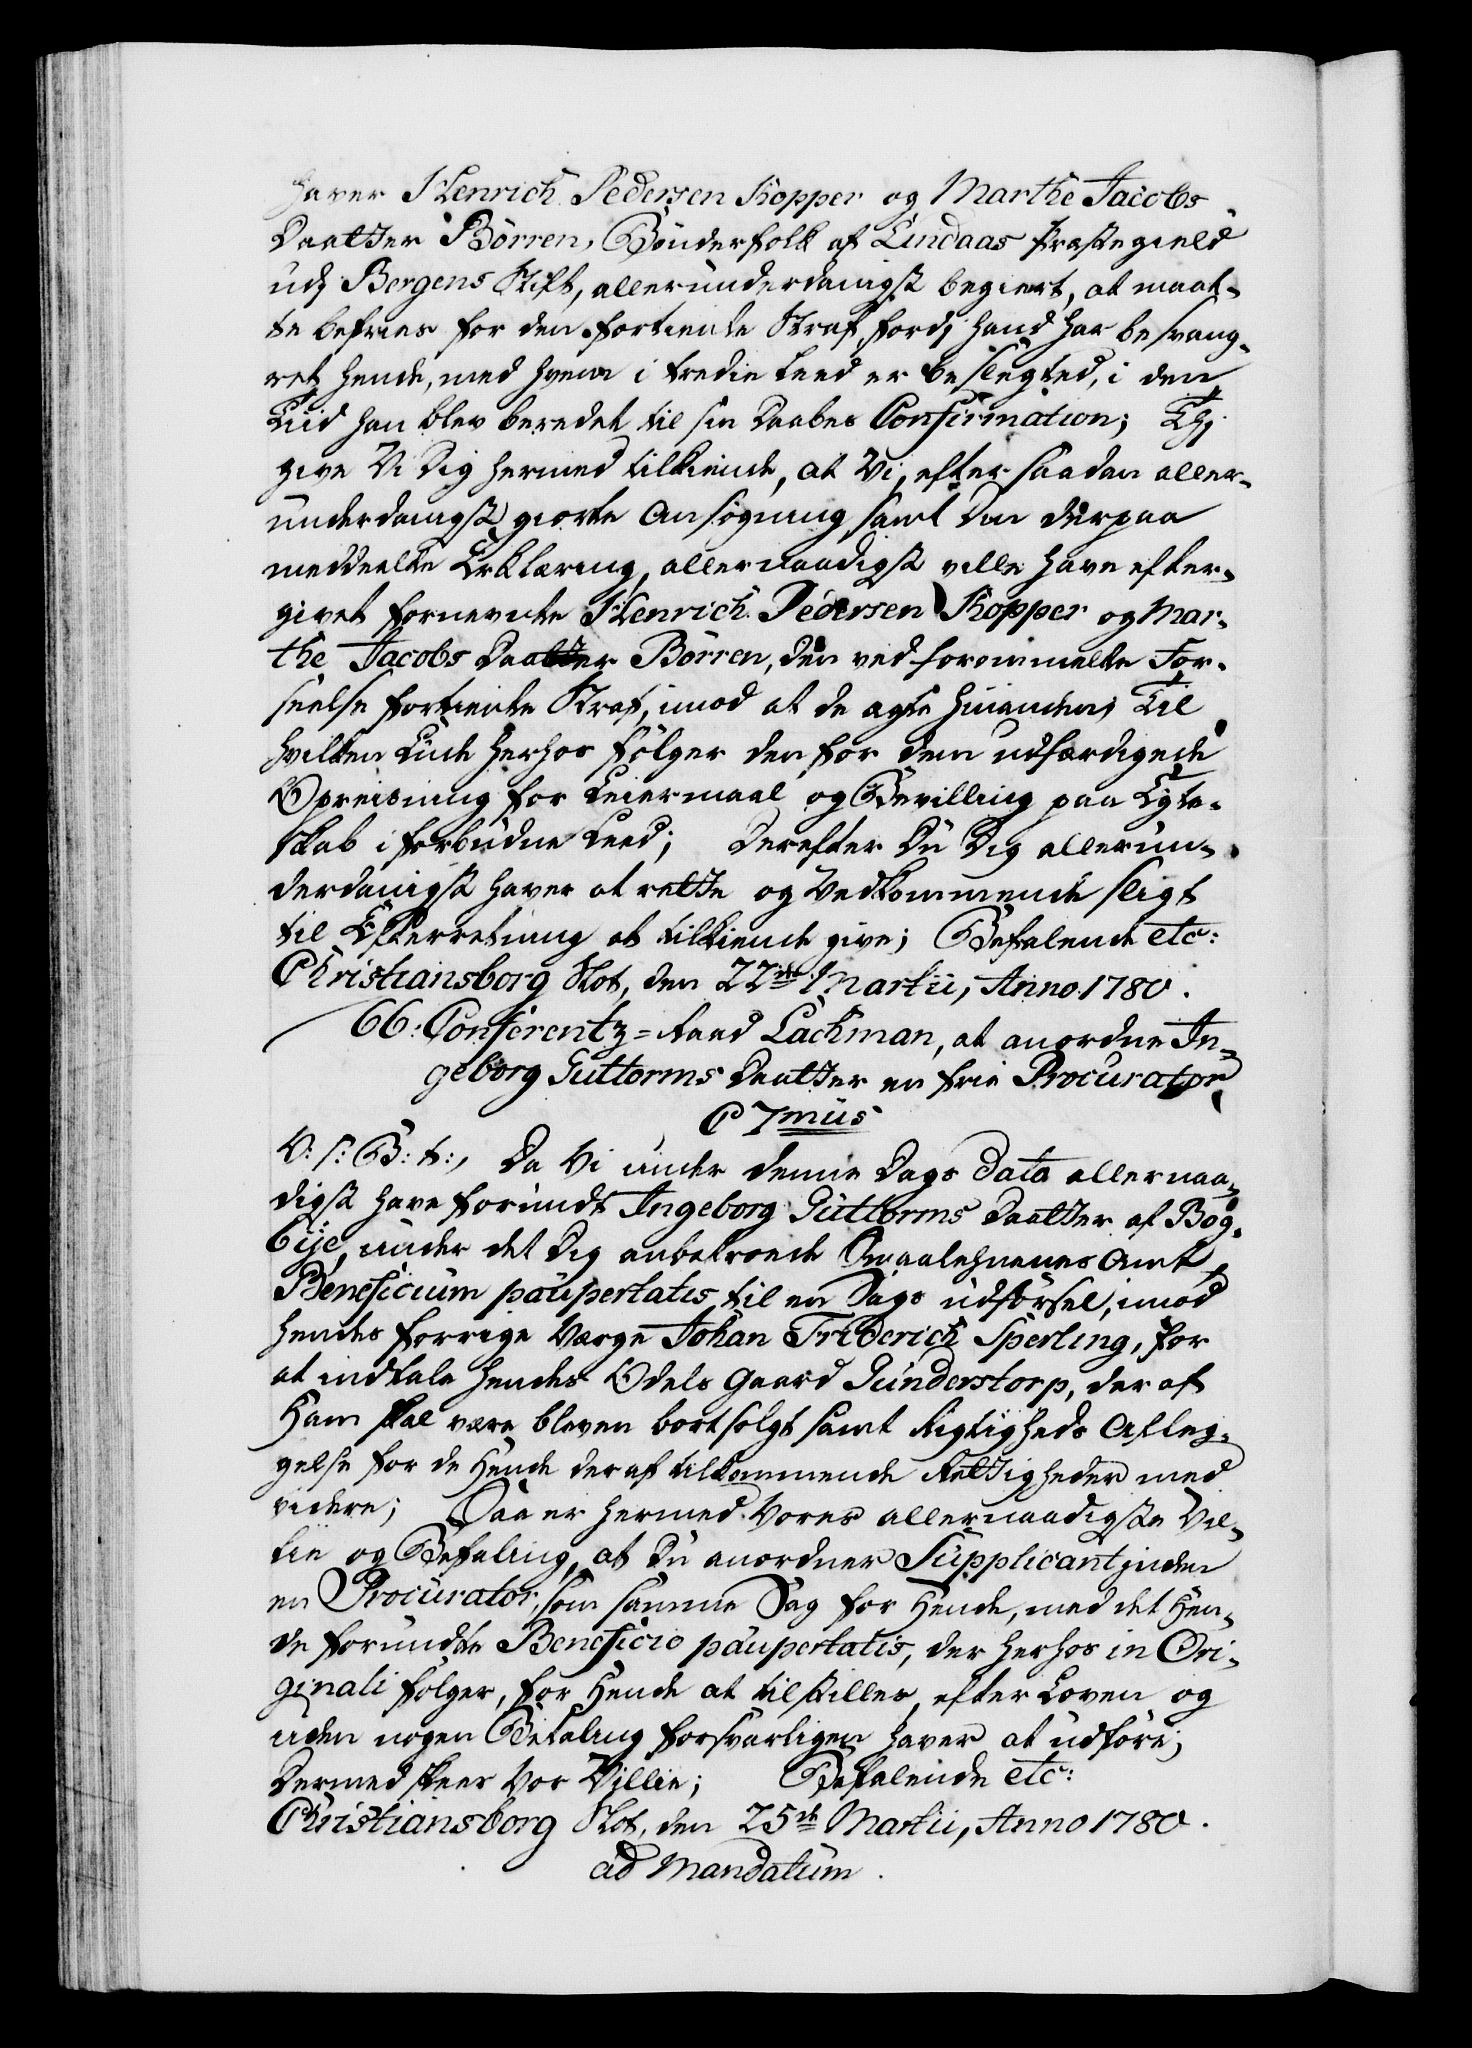 haver Henrich Pedersen Kopper og Marthe Jacobs
Daatter Börren, Bönderfolk af Lindaas Præstegield
udj Bergens Stift, allerunderdanigst begiert, at maat-
te befries for den fortiente Straf, fordj hand har besvang-
ret hende, med hvem i tredie Leed er beslegted, i den
Tiid han blev beredet til sin Daabes Confirmation; Thj
give Vi Dig hermed tilkiende, at Vi, efter saadan aller-
underdanigst giorte Ansögning samt Din derpaa
meddeelte Erklæring, allernaadigst ville have efter-
givet fornevnte Henrich Pedersen Kopper og Mar-
the Jacobs Daatter Börren, den ved forommelte For-
seelse fortiente Straf, imod at de ægte hinanden; Til
hvilken Ende herhos fölger den for dem udfærdigede
Opreisning for Leiermaal og Bevilling paa Egte-
skab i forbudne Leed; Derefter Du Dig allerun-
derdanigst haver at rette og Vedkommende sligt
til Efterretning at tilkiende give; Befalende etc:
Christiansborg Slot, den 22de Martii, Anno 1780.
66: Conferentz-Raad Lachman, at anordne In-
geborg Guttorms Daatter en frie Procurator
C 7mus
V: s: G: t:, Da Vi under denne Dags Dato allernaa-
digst have forundt Ingeborg Guttorms Daatter af Bog-
bije, under det Dig anbetroede Smaalehnenes Amt,
Beneficium paupertatis, til en Sags udförsel, imod
hendes forrige Værge Johan Friderich Sperling, for
at indtale hendes Odels Gaard Gunderstorp, der af
Ham skal være bleven bortsolgt samt Rigtigheds Aflæg-
gelse for de Hende deraf tilkommende Rettigheder med
videre; Saa er hermed Vores allernaadigste Vil-
lie og Befaling, at Du anordner Supplicantinden
en Procurator, som samme Sag for Hende, med det Hen-
de forundte Beneficio paupertatis, der herhos in Ori-
ginali fölger, for Hende at tilstilles, efter Loven og
uden nogen Betaling forsvarligen haver at udföre;
Dermed skeer Vor Villie; Befalende etc:
Christiansborg Slot, den 25de Martii, Anno 1780.
ad Mandatum.